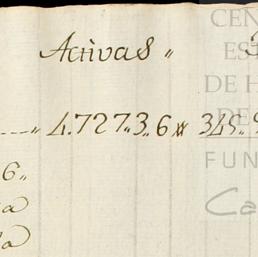 Activas „
----„ 4.727„3„6 345„
6„
a
a
CEN
ES
DE H
DE
FUN
Ca